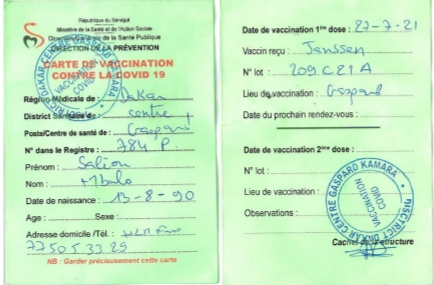 République du Sénégal
Ministère de la Santé et de l'Action Sociale
Direction Générale de la Santé Publique
DIRECTION DE LA PRÉVENTION
CARTE DE VACCINATION
CONTRE LA COVID 19
Région Médicale de : Dakar
District Sanitaire de : centre
Poste/Centre de santé de : Gaspard
N° dans le Registre : 784 P.
Prénom : Saliou
Nom :
Date de naissance : 13-8-90
Age : Sexe :
Adresse domicile /Tél. :
77 505 33 29
NB : Garder précieusement cette carte
DISTRICT DAKAR CENTRE GASPARD KAMARA
VACCINATION
COVID
Date de vaccination 1ère dose : 27-7-21
Vaccin reçu : Janssen
N° lot : 209.C21A
Lieu de vaccination : Gaspard
Date du prochain rendez-vous :
Date de vaccination 2ème dose :
N° lot :
Lieu de vaccination :
Observations :
DISTRICT DAKAR CENTRE GASPARD KAMARA
VACCINATION
COVID
Cachet de la structure